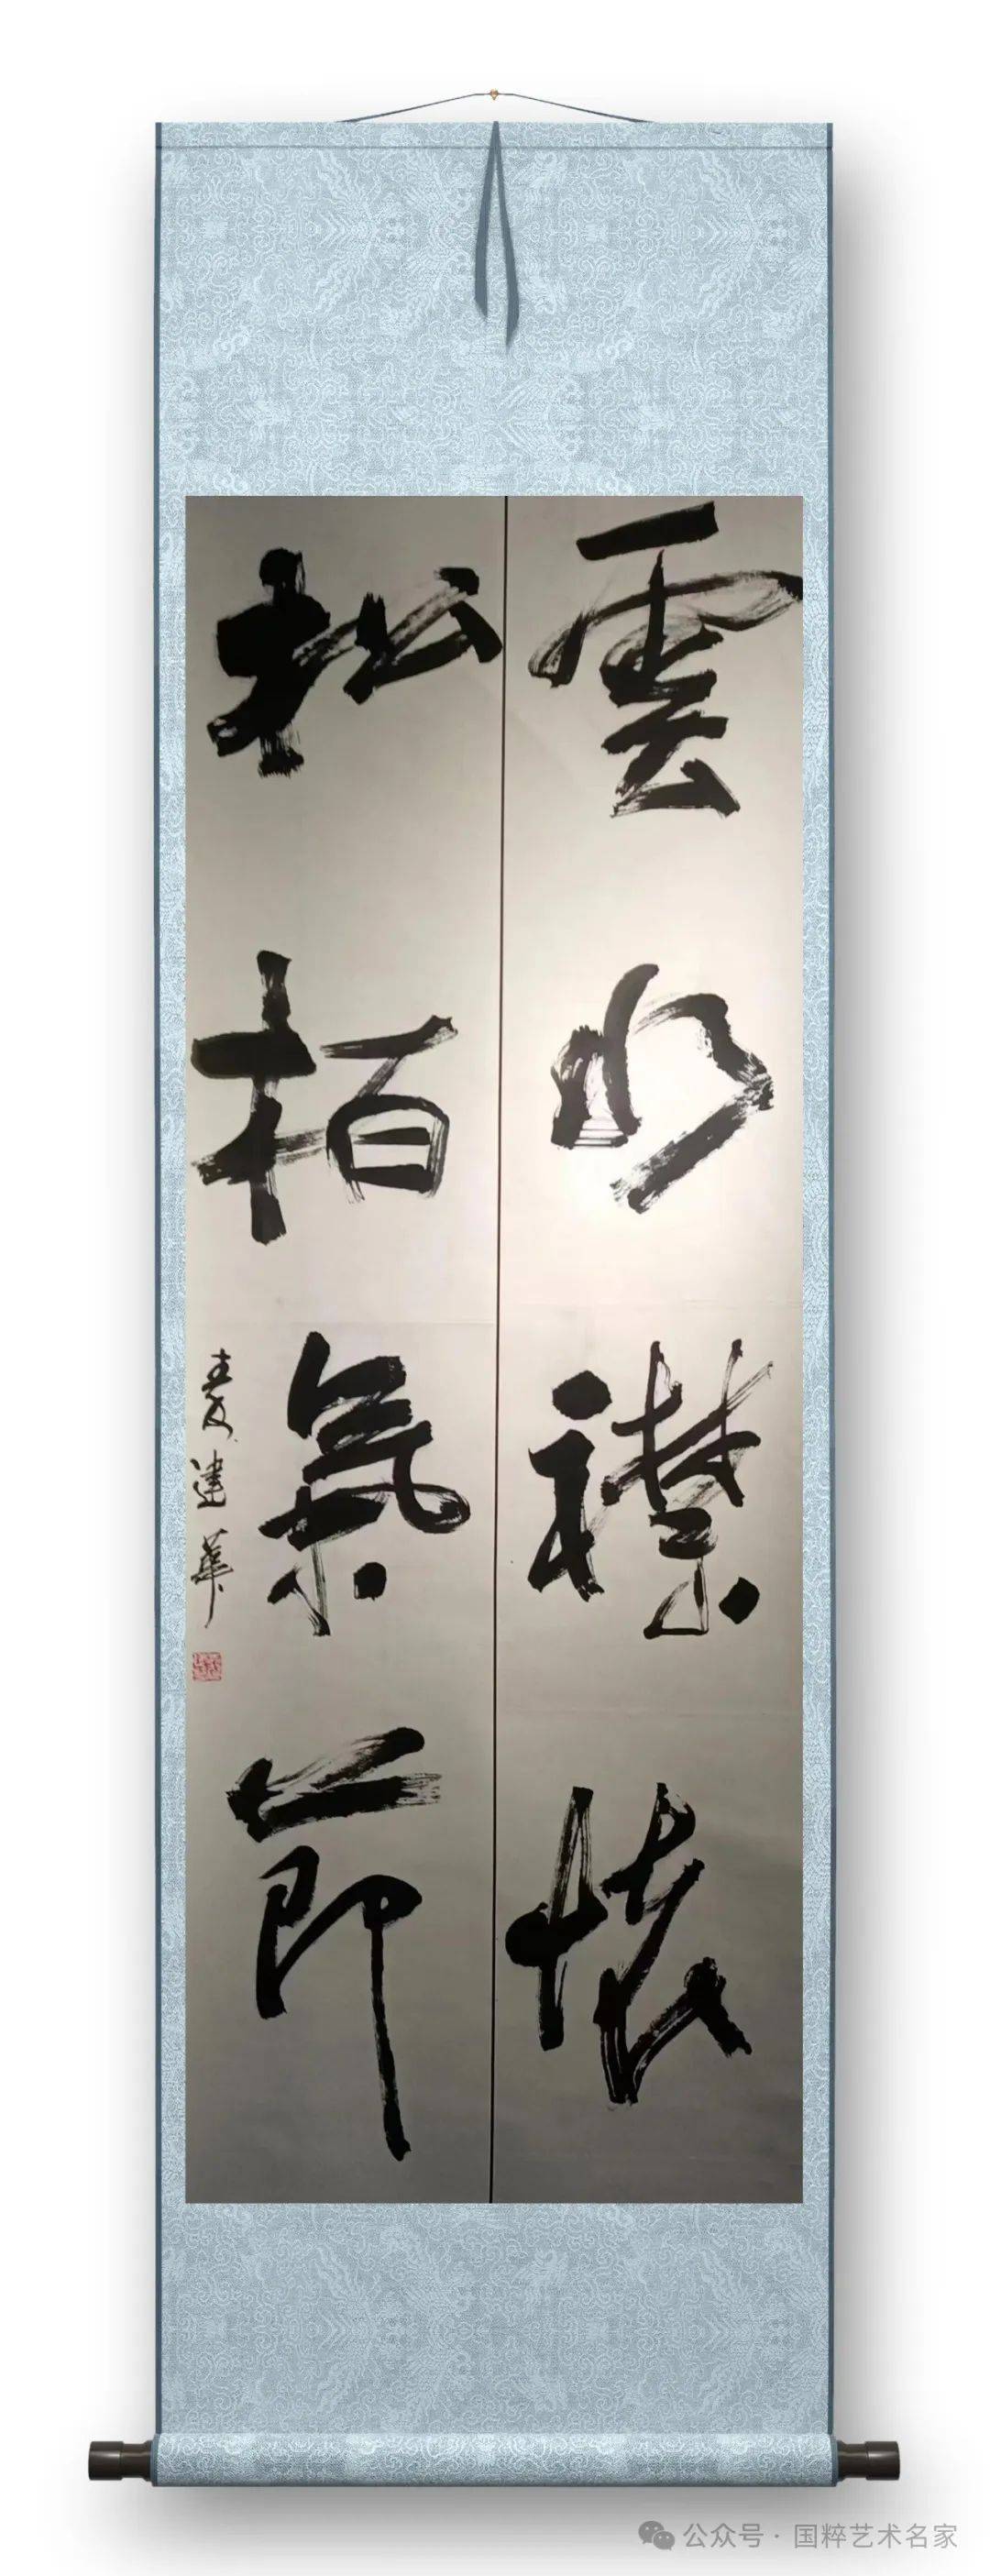 雲水襟懷
松柏氣節
建華
公众号 · 国粹艺术名家